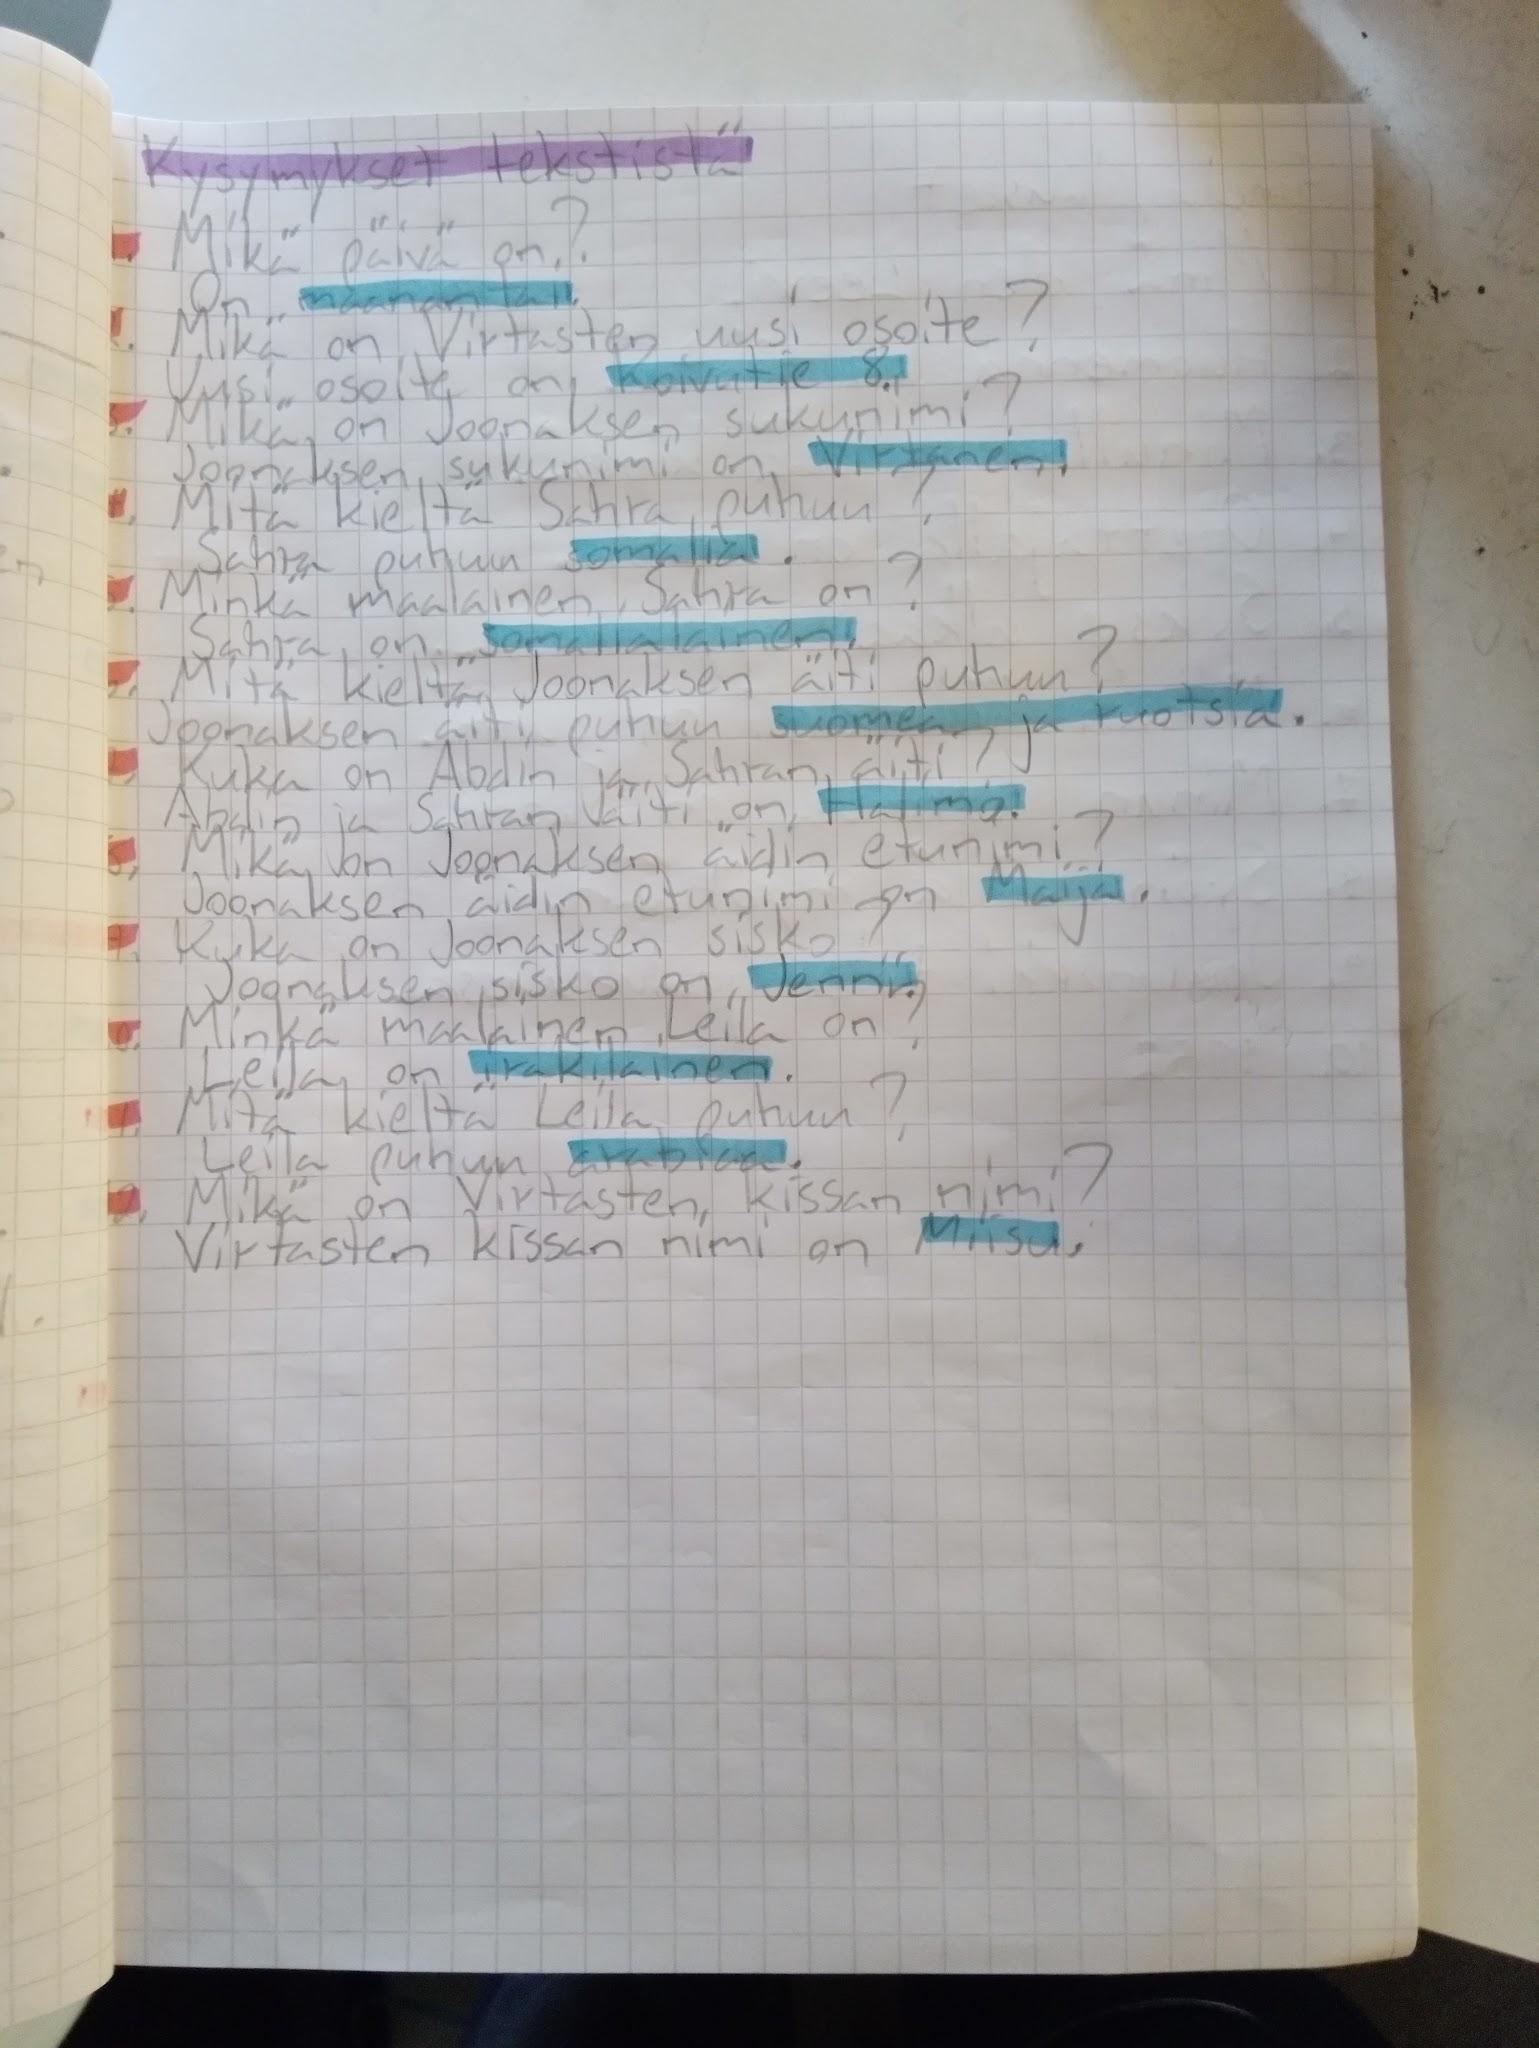 Kysymykset tekstistä
Mikä päivä on?
On maanantai.
Mikä on Virtasten uusi osoite?
Uusi osoite on Koivutie 8.
3. Mikä on Joonaksen sukunimi?
Joonaksen sukunimi on Virtanen.
4. Mitä kieltä Sahra puhuu?
Sahra puhuu somalia.
5. Minkä maalainen Sahra on?
Sahra on somalialainen.
Mitä kieltä Joonaksen äiti puhuu?
Joonaksen äiti puhuu suomea ja ruotsia.
Kuka on Abdin ja Sahran äiti?
Abdin ja Sahran äiti on Halima.
8. Mikä on Joonaksen äidin etunimi?
Joonaksen äidin etunimi on Maija.
Kuka on Joonaksen sisko?
Joonaksen sisko on Jenni.
Minkä maalainen Leila on?
Leila on irakilainen.
Mitä kieltä Leila puhuu?
Leila puhuu arabiaa.
Mikä on Virtasten kissan nimi?
Virtasten kissan nimi on Miisu.